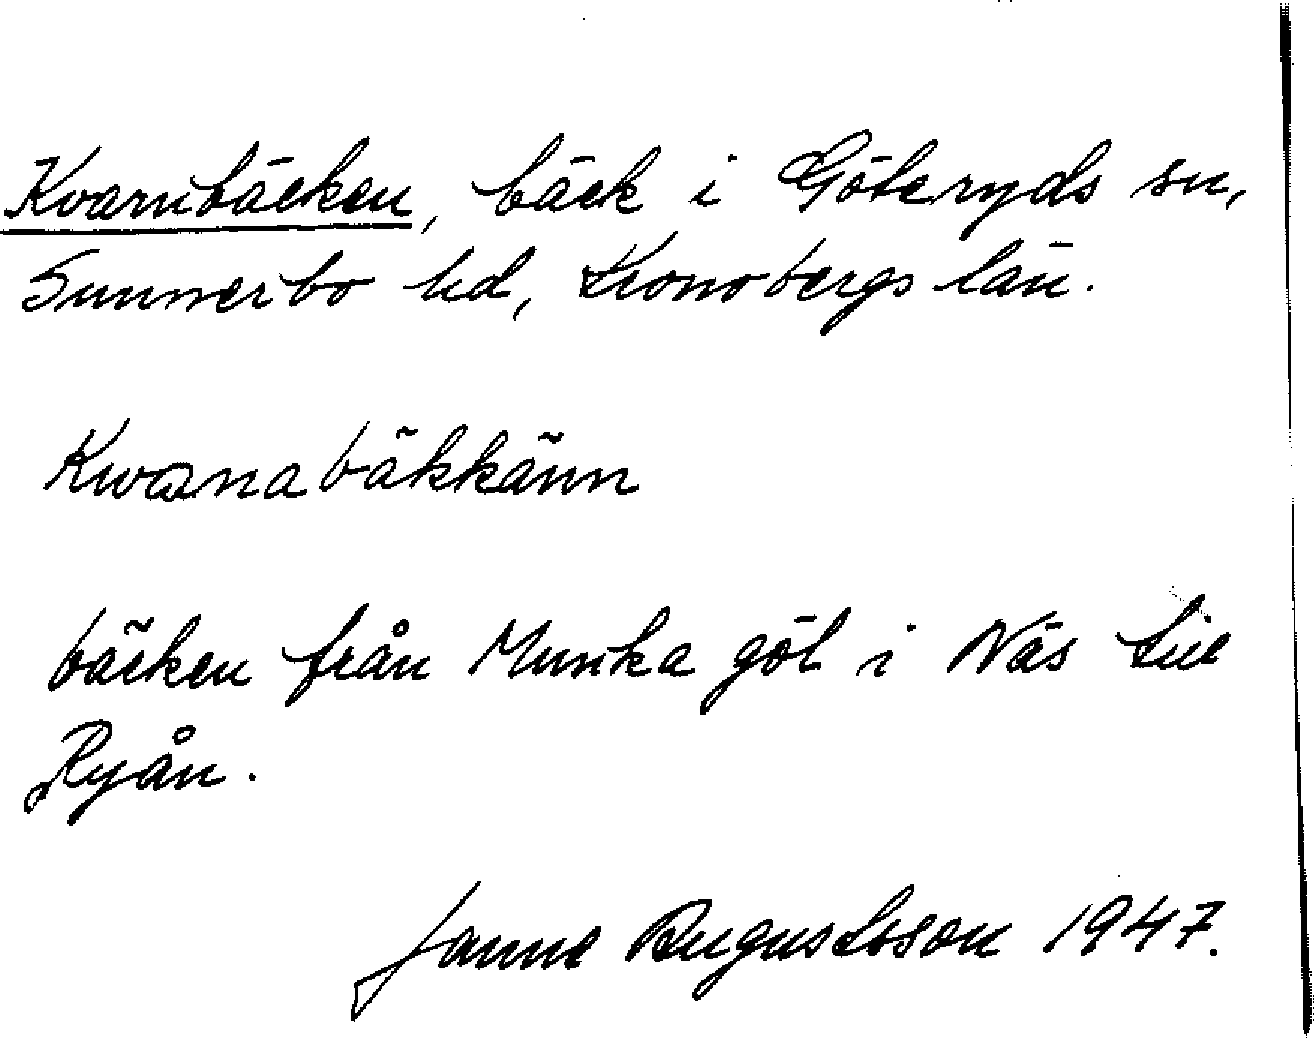 Kvarnbäcken, bäck i Göteryds sn,
Sunnerbo hd, Kronobergs län.
Kwanabäkkänn
bäcken från Munka göl i Näs till
Ryån.
Janne Augustsson 1947.